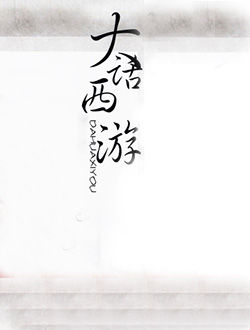 大话西游
DAHUAXIYOU